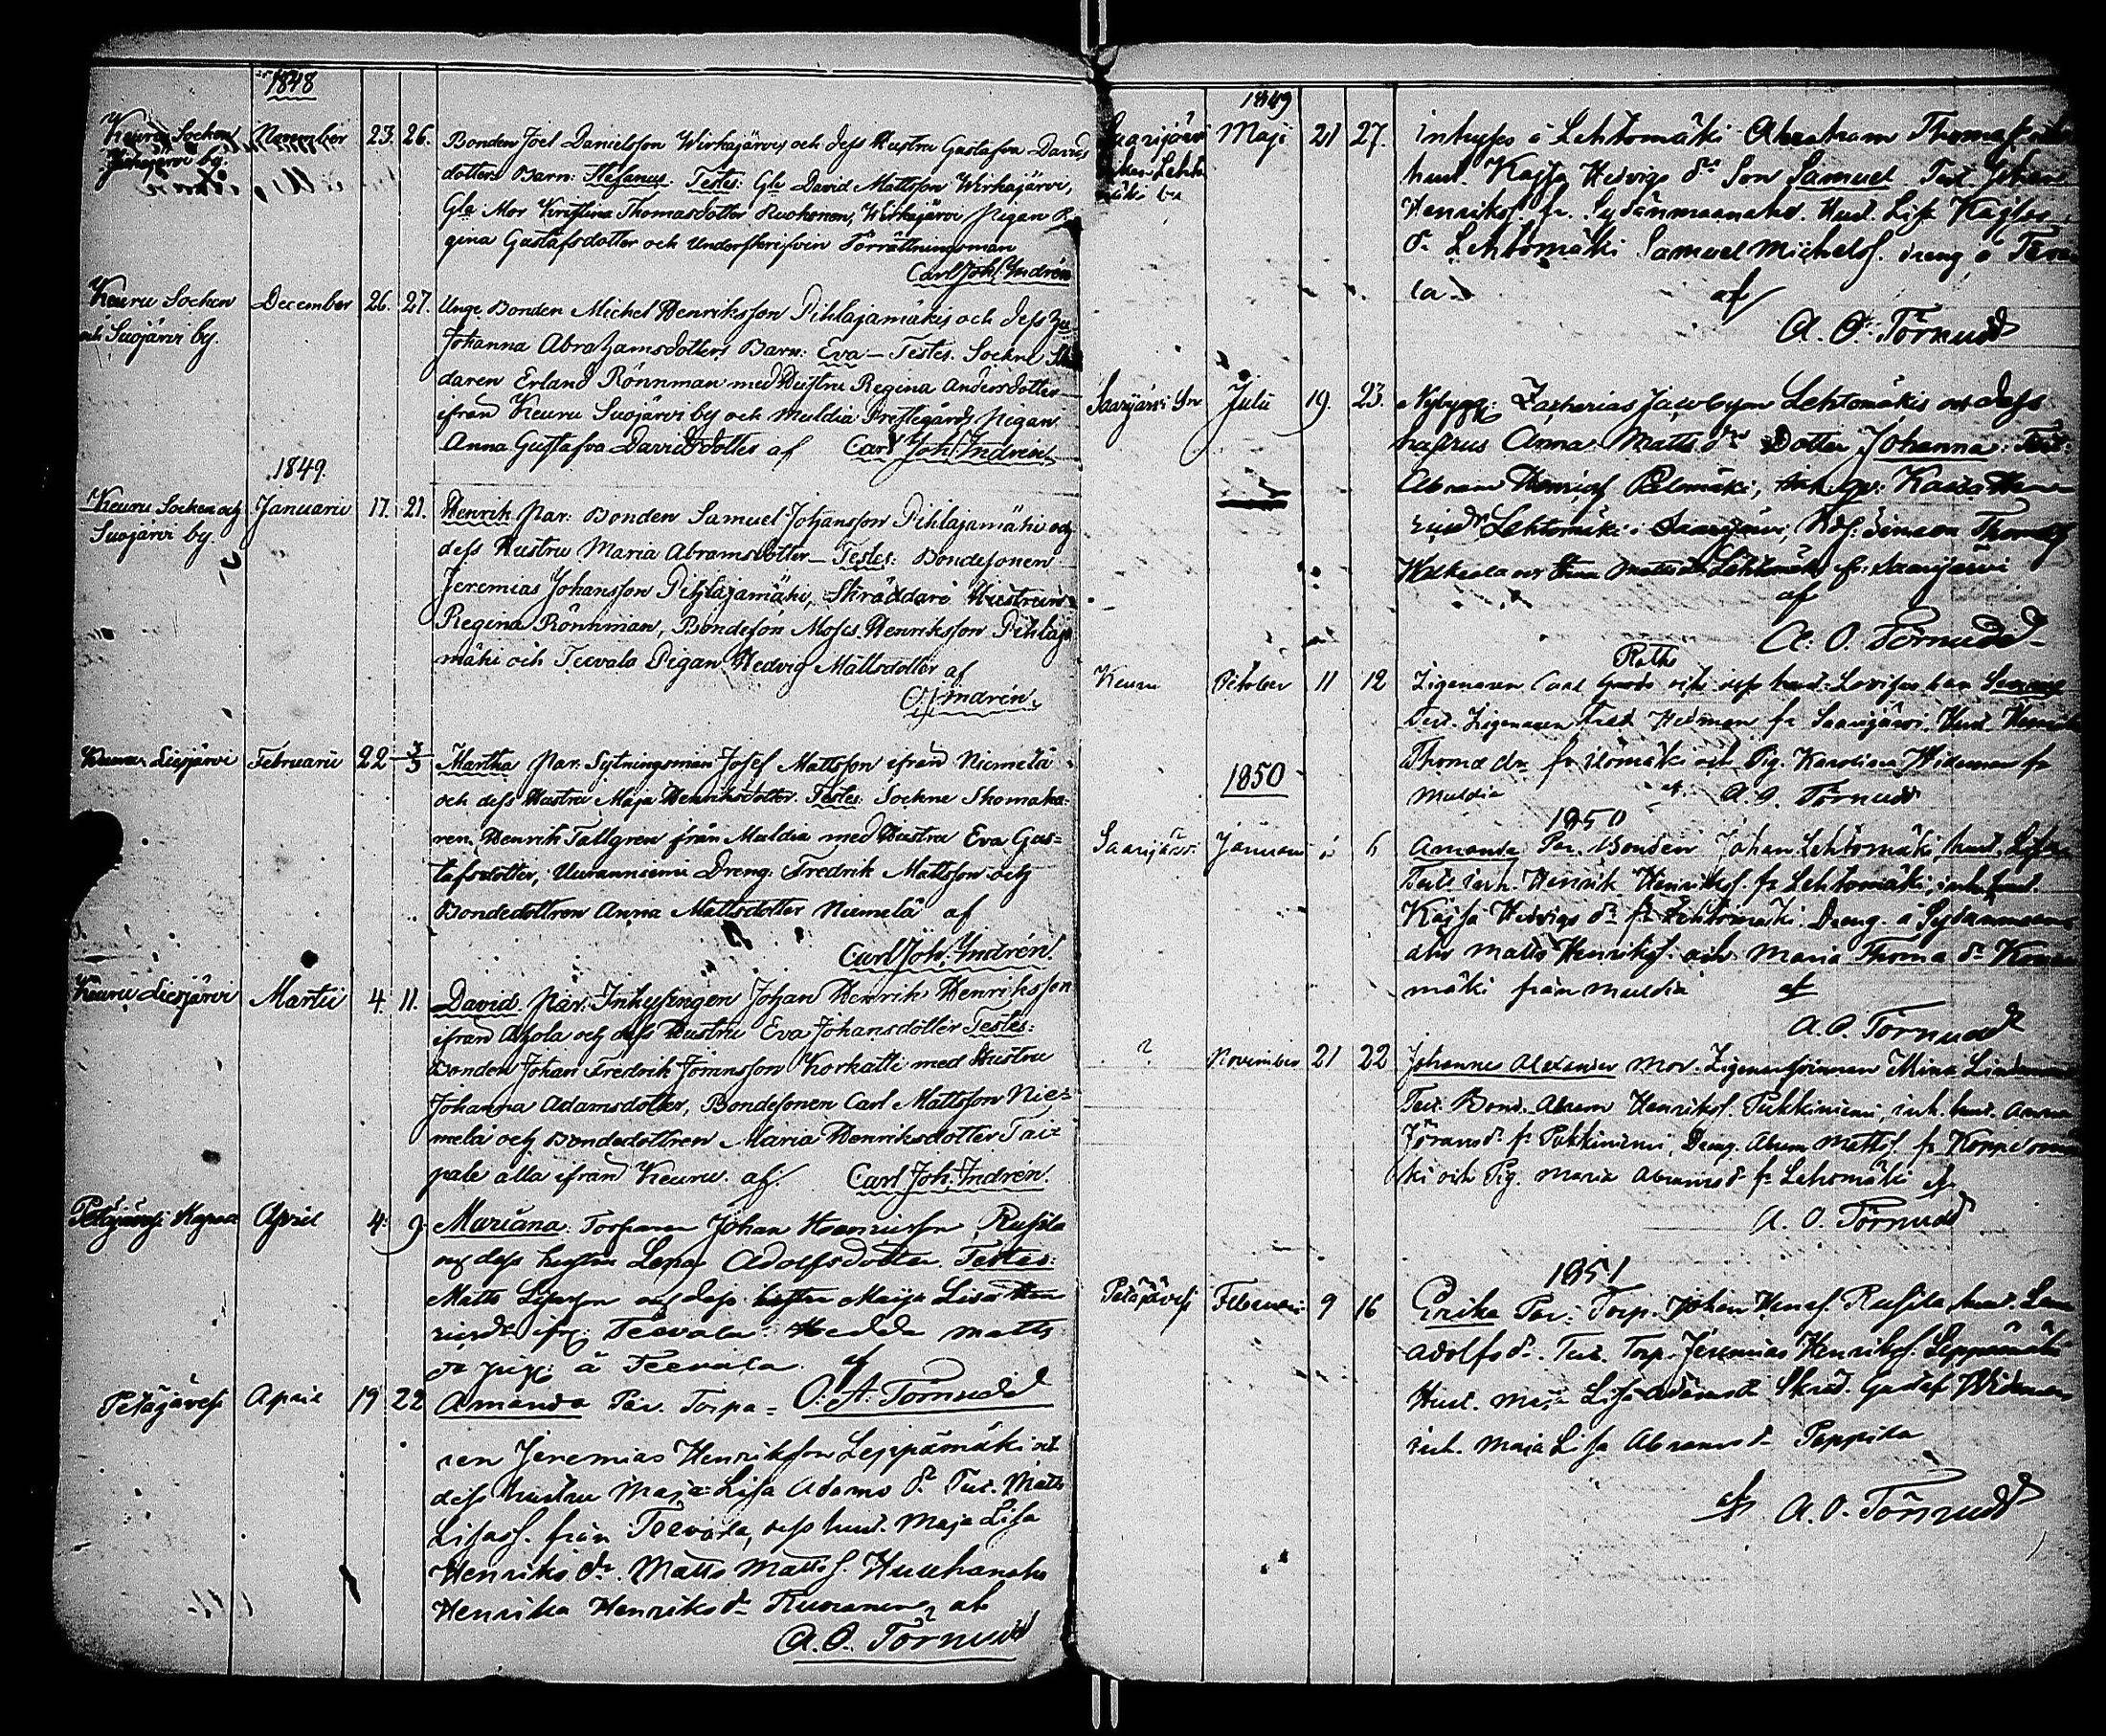 1848
Keuru Socken November 23. 26. Bonden Joel Danielsson Wirkajärvi och dess Hustru Gustafva Davids
by. dotters Barn: Stefanus. Testes: Gle David Mattsson Wirkajärvi,
Gla Mor Kristina Thomasdotter Ruohonen, Wirkajärvi pigan Re
gina Gustafsdotter och Underskrifvin Förrättningsman
Carl Joh. Indrén
Keuru Socken December 26. 27. Unge Bonden Michel Henriksson Pihlajamäkis och dess Hu-
och Suojärvi by. Johanna Abrahamsdotters Barn: Eva – Testes. Sockne Skrä
daren Erland Rönnman med Hustru Regina Andersdotter
ifrån Keuru Suojärvi by och Muldia Prestegårds pigan
Anna Gustafva Davidsdotter af Carl Joh. Indrén
1849.
Keuru Socken och Januarii 17. 21. Henrik Par: Bonden Samuel Johansson Pihlajamäki och
Suojärvi by. dess Hustru Maria Abramsdotter – Testes: Bondesonen
Jeremias Johansson Pihlajamäki, Skräddare Hustrun
Regina Rönnman, Bondeson Moses Henriksson Pihlaja
mäki och Teevala Pigan Hedvig Mattsdotter af
CJ Indrén.
Keuru Liesjärvi Februarii 22 3/3 Martha Par: Sytningsman Josef Mattsson ifrån Niemelä
och dess Hustru Maja Henriksdotter. Testes: Sockne Skomaka-
ren Henrik Tallgren från Muldia med Hustru Eva Gus-
tafsdotter, Dreng Fredrik Mattsson och
Bondedottren Anna Mattsdotter Niemelä af
Carl Joh. Indrén.
Keuru Liesjärvi Martii 4. 11. David Par: Inhysingen Johan Henrik Henriksson
ifrån Ahola och dess Hustru Eva Johansdotter Testes:
Bonden Johan Fredrik Jöransson Korkatti med Hustru
Johanna Adamsdotter, Bondesonen Carl Mattsson Nie-
melä och Bondedottren Maria Henriksdotter Tai-
pale alla ifrån Keuru. af. Carl Joh. Indrén.
Petäjävesi April 4. 9. Mariana: Torparen Johan Henricsson Rusila
och dess hustru Lena Adolfsdotter. Testes:
Matts och dess hustru Maija Lisa Hen
ricsdr ifr: Teevala. Hedda Matts
dr pig: å Teevala. af
Petäjävesi April 19 22 Amanda Par. Torpa= O. A. Törnudd
ren Jeremias Henriksson Leppämäki och
dess hustru Maja Lisa Adams dr Test. Matts
Lisass. från Teevala, dess hust. Maja Lisa
Henriks dr. Matts Matts s.
Henrika Henriks dr af
A. O. Törnudd
1849
Saarijärvi Maji 21 27. inhyses å Lehtomäki Abraham Thomass. och
hust. Kajsa Hedvigs dr Son Samuel Test. Johan
Henrikss. fr. Hust. Lisa Kajsas
dr Lehtomäki Samuel Michelss. dreng å Teeva
la. af
A. O. Törnudd
Saarijärvi Julii 19. 23. Nybygg: Zacharias Jacobsson Lehtomäkis och dess
hustrus Anna Matts drs Dotter Johanna: Test:
Abram Palomäki, Kaisa Hen
ricsdr Lehtomäki i Saarijärvi, Simeon Thomass.
Lehtomäki fr. Saarijärvi
af
A. O. Törnudd
Keuru October 11 12 Zigenaren Carl Roth och dess hust. Lovisas
Test. Zigenaren Fred. Hedman fr Saarijärvi. Hust.
Thoma dr fr och Pig. Karolina Wideman fr
1850 Muldia af. A. O. Törnudd
1850
Saarijärvi Januari 6 Amanda Par. Bonden Johan Lehtomäki, hust. Lisa
Test. inh. Henrik Henrikss. fr Lehtomäki, inh. hust.
Kajsa Hedvigs dr fr Lehtomäki. Dreng. å
Matts Henrikss. och Maria Thoma dr
mäki från Muldia af
A. O. Törnudd
? November 21 22 Johannes Alexander Mor. Zigenerqvinnan Mina
Test. Bond. Abram Henrikss. Pukkiniemi, inh. hust. Anna
Jörans dr fr Pukkiniemi, Deng. Abram Mattss. fr
ki och Pig. Maria Abrams dr fr Lehtomäki af
A. O. Törnudd
1851
Petäjävesi Februari 9 16 Erika Par: Torp. Johan Rusila, hust. Lena
Adolfs dr. Test. Torp. Jeremias Henrikss. Leppämäki
Hust. Maja Lisa Adams dr Skräd. Gustaf Wideman
inh. Maja Lisa Abrams dr Pappila
af A. O. Törnudd